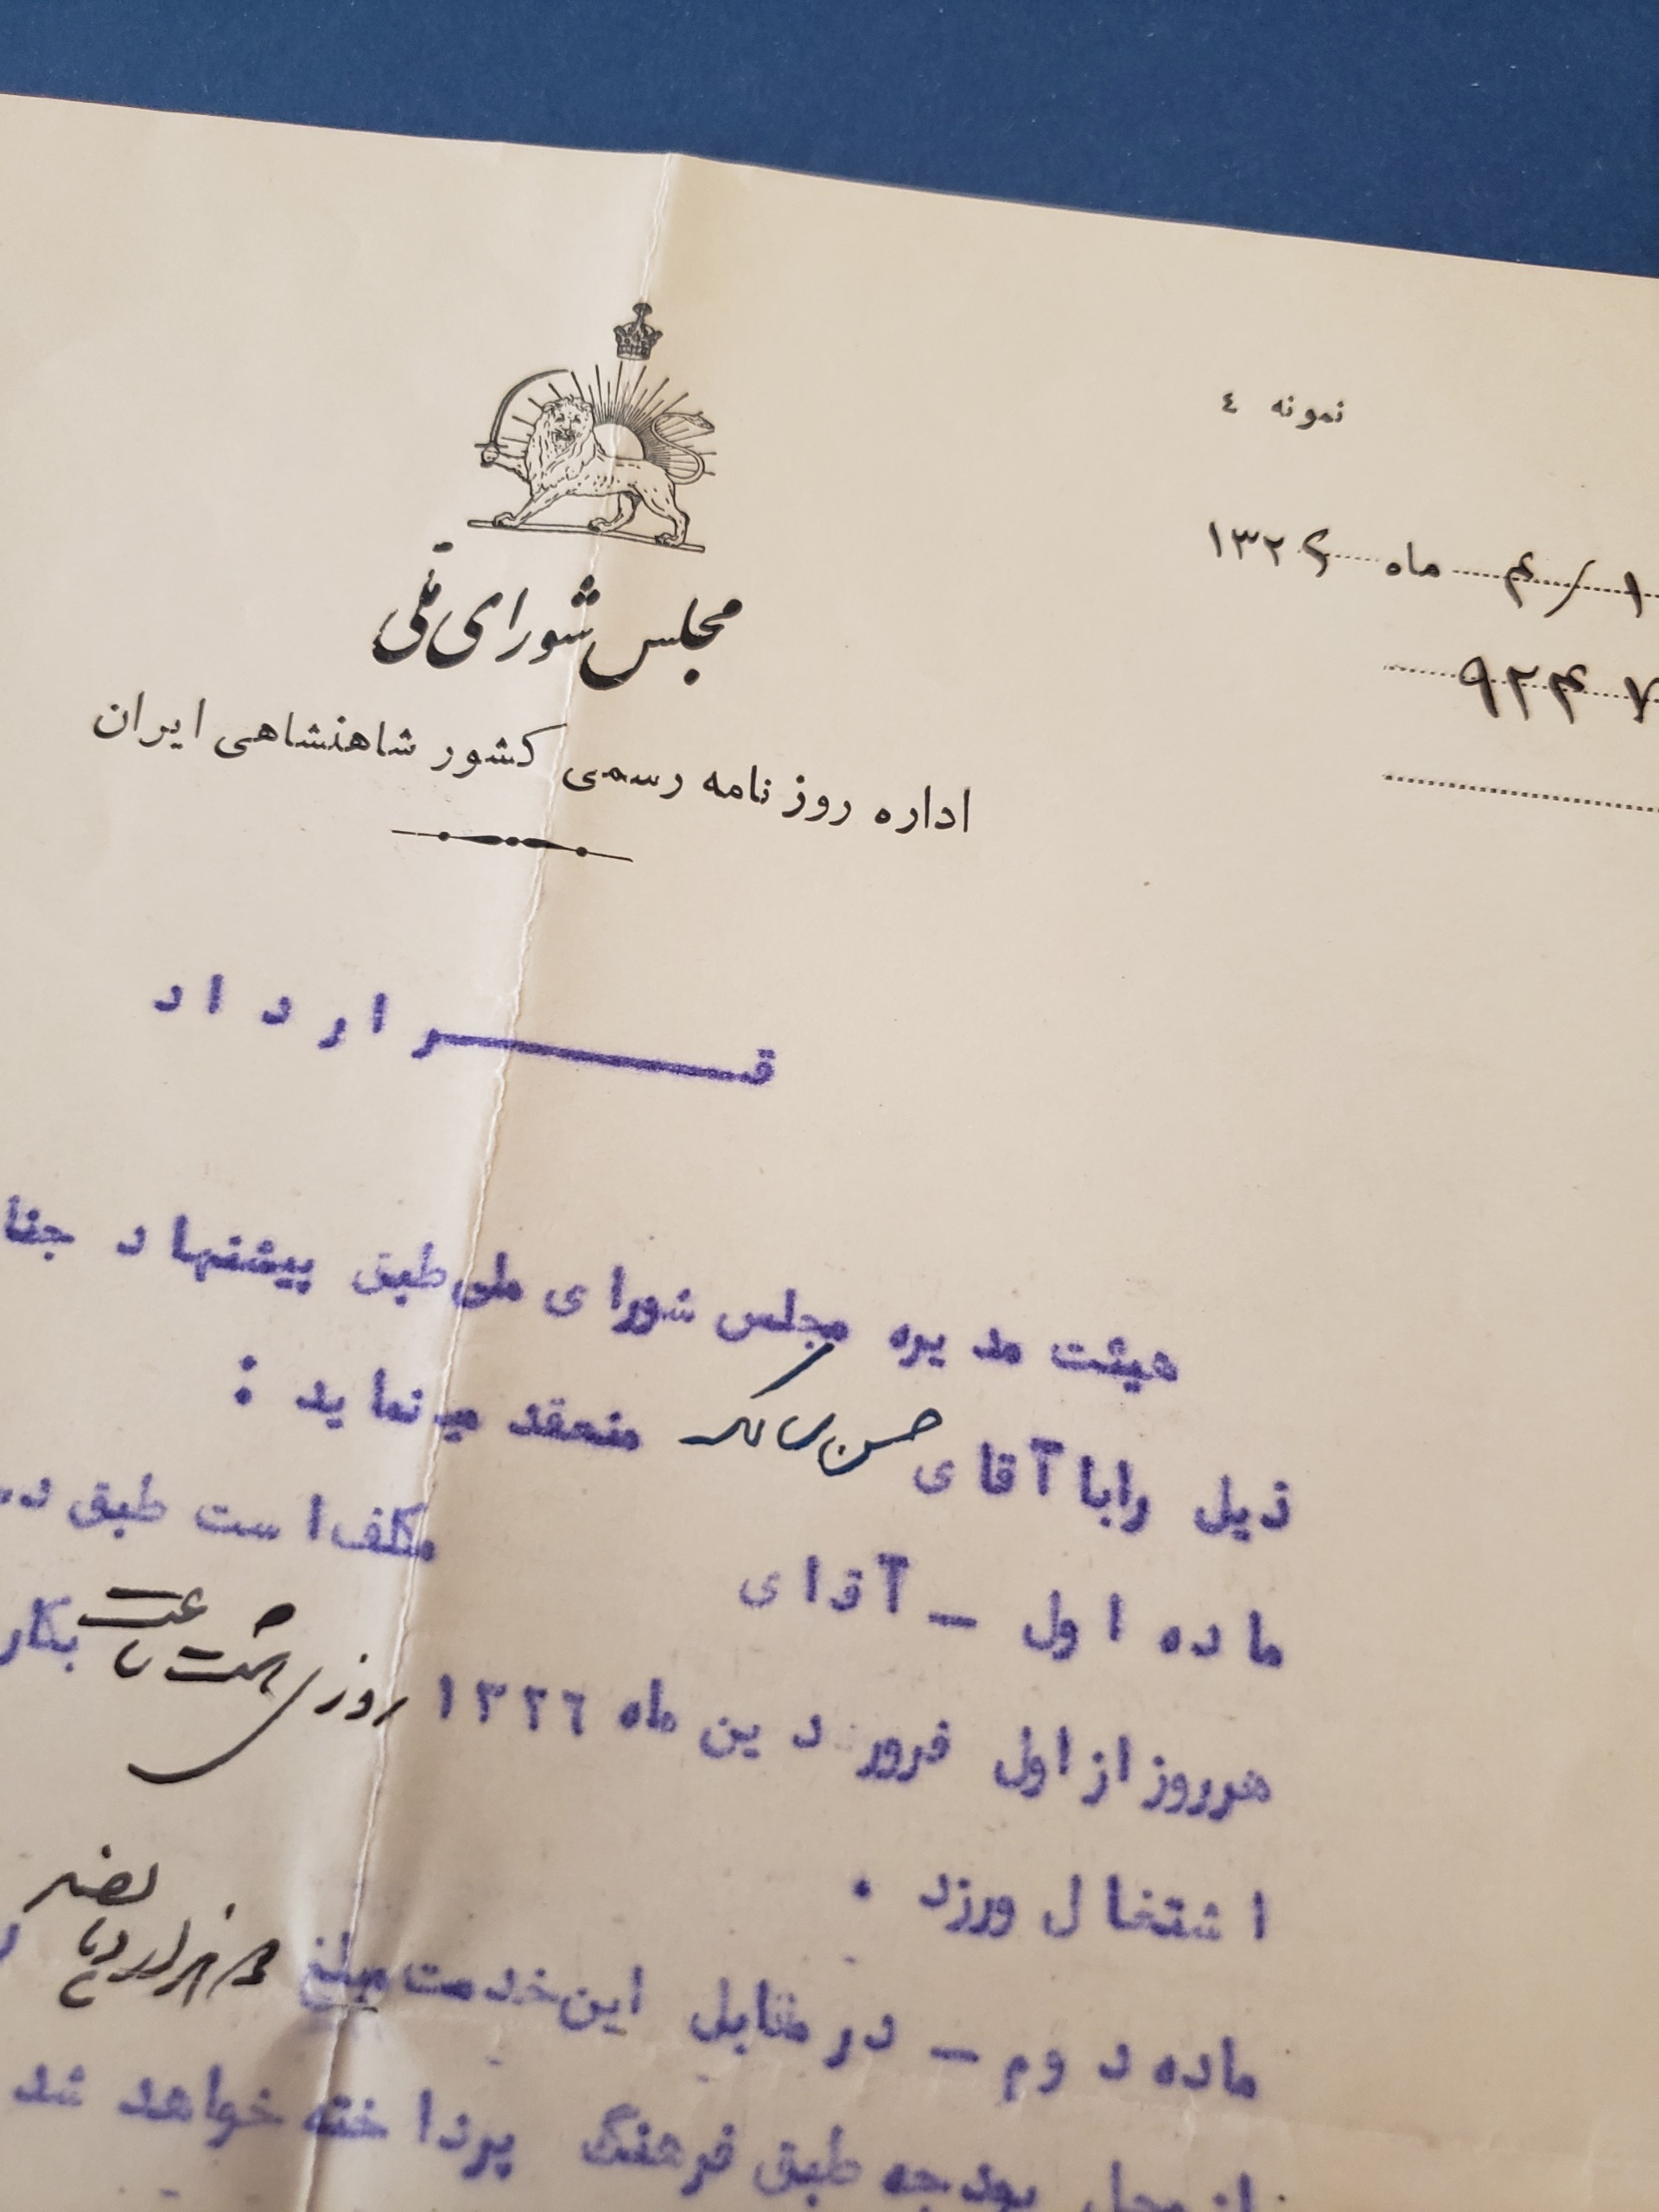 نمونه ٤
۱ / ۴ ماه ۱۳۲۶
۹۲۴۷
مجلس شورای ملّی
اداره روزنامه رسمی کشور شاهنشاهی ایران
قـــرارداد
هیئت مدیره مجلس شورای ملی طبق پیشنهاد جنا
ذیل را با آقای حسن منعقد مینماید :
ماده اول – آقای مکلف است طبق
هرروز از اول فروردین ماه ۱۳۲٦ روزی هشت ساعت بکار
اشتغال ورزد .
ماده دوم – در مقابل این خدمت مبلغ
از محل بودجه طبق فرهنگ پرداخته خواهد شد